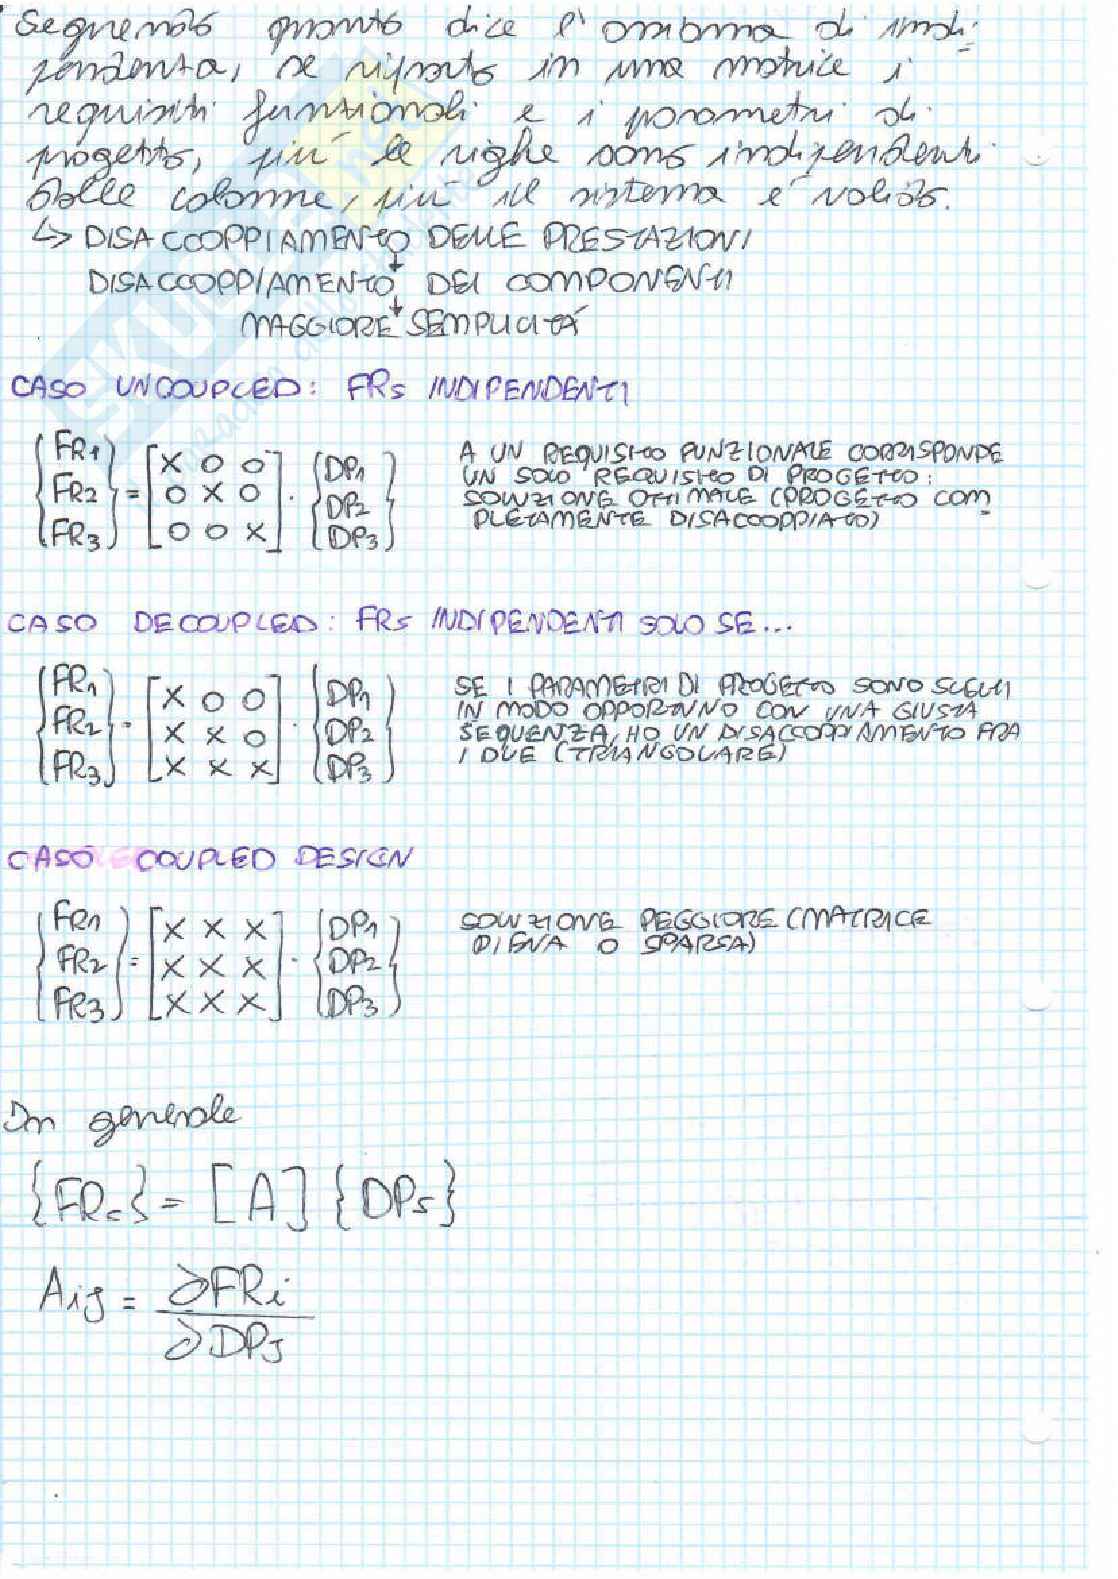 Seguendo quanto dice l'assioma di indi-
pendenza, se riporto in una matrice i
requisiti funzionali e i parametri di
progetto, più le righe sono indipendenti
dalle colonne, più il sistema è valido.
↳ DISACCOOPPIAMENTO DELLE PRESTAZIONI
↓
DISACCOOPPIAMENTO DEI COMPONENTI
↓
MAGGIORE SEMPLICITÁ
CASO UNCOUPLED: FRs INDIPENDENTI
{FR1 FR2 FR3} = [X 0 0; 0 X 0; 0 0 X] · {DP1 DP2 DP3}
A UN REQUISITO FUNZIONALE CORRISPONDE
UN SOLO REQUISITO DI PROGETTO:
SOLUZIONE OTTIMALE (PROGETTO COM-
PLETAMENTE DISACOOPPIATO)
CASO DECOUPLED: FRs INDIPENDENTI SOLO SE...
{FR1 FR2 FR3} = [X 0 0; X X 0; X X X] · {DP1 DP2 DP3}
SE I PARAMETRI DI PROGETTO SONO SCELTI
IN MODO OPPORTUNO CON UNA GIUSTA
SEQUENZA, HO UN DISACCOPPIAMENTO FRA
I DUE (TRIANGOLARE)
CASO COUPLED DESIGN
{FR1 FR2 FR3} = [X X X; X X X; X X X] · {DP1 DP2 DP3}
SOLUZIONE PEGGIORE (MATRICE
PIENA O SPARSA)
In generale
{FRs} = [A] {DPs}
Aij = ∂FRi / ∂DPj